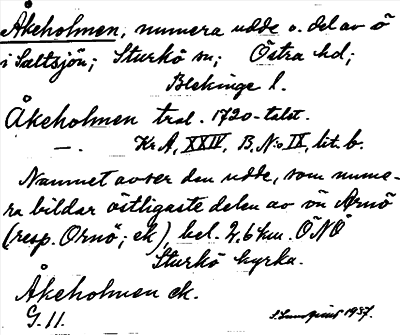 Åkeholmen, numera udde o. del av ö
i Saltsjön; Sturkö sn; Östra hd;
Blekinge l.
Åkeholmen trol. 1720-talet.
—. Kr A, XXIV, B. N:o IX, lit. b.
Namnet avser den udde, som nume-
ra bildar östligaste delen av ön Arnö
(resp. Ornö; ek), bel. 2,6 km. ÖNÖ
Sturkö kyrka.
Åkeholmen ek.
G. 11. S. Lundquist 1937.